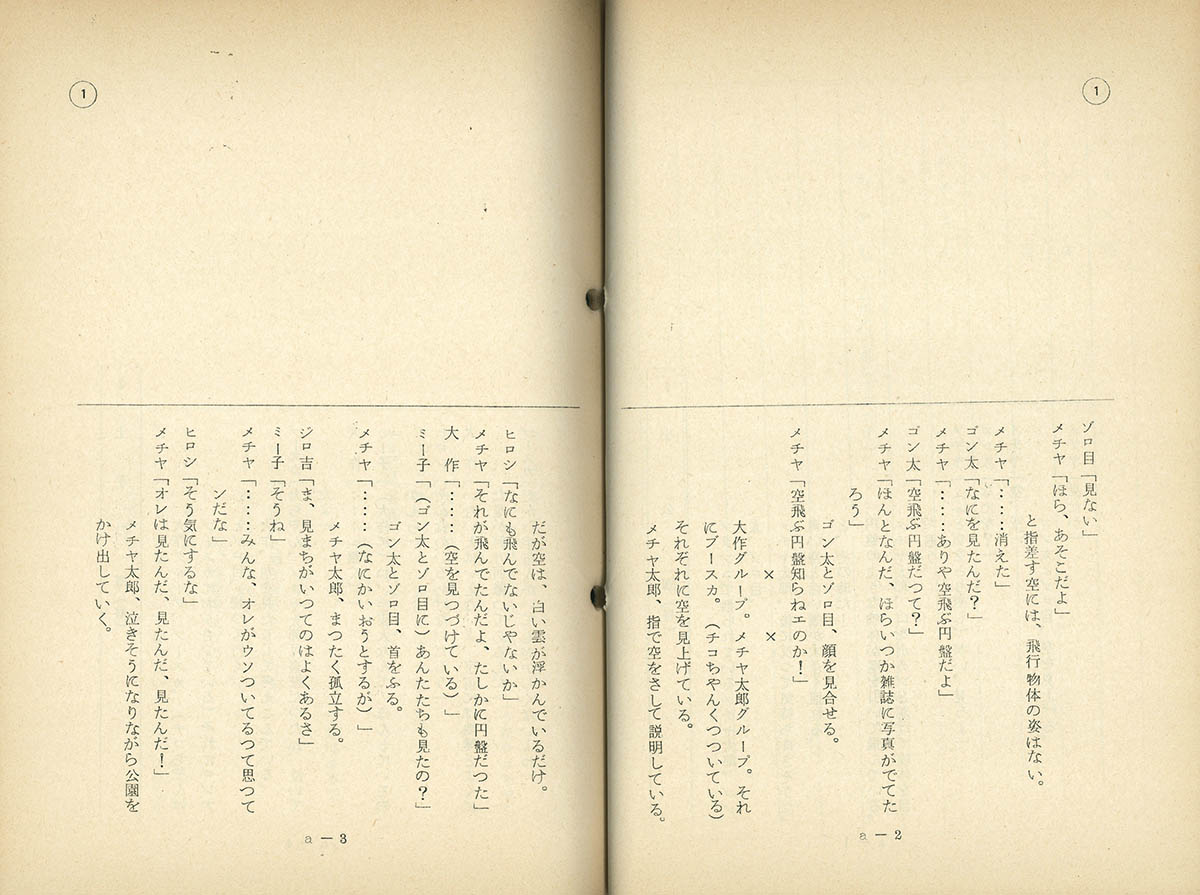 ①
ゾロ目「見ない」
メチヤ「ほら、あそこだよ」
と指差す空には、飛行物体の姿はない。
メチヤ「‥‥消えた」
ゴン太「なにを見たんだ？」
メチヤ「‥‥ありや空飛ぶ円盤だよ」
ゴン太「空飛ぶ円盤だつて？」
メチヤ「ほんとなんだ、ほらいつか雑誌に写真がでてた
ろう」
ゴン太とゾロ目、顔を見合せる。
メチヤ「空飛ぶ円盤知らねエのか！」
×　×
大作グループ。メチヤ太郎グループ。それ
にブースカ。（チコちやんくつついている）
それぞれに空を見上げている。
メチヤ太郎、指で空をさして説明している。
a－2
①
だが空は、白い雲が浮かんでいるだけ。
ヒロシ「なにも飛んでないじやないか」
メチヤ「それが飛んでたんだよ、たしかに円盤だつた」
大　作「‥‥（空を見つづけている）」
ミー子「（ゴン太とゾロ目に）あんたたちも見たの？」
ゴン太とゾロ目、首をふる。
メチヤ「‥‥（なにかいおうとするが）」
メチヤ太郎、まつたく孤立する。
ジロ吉「ま、見まちがいつてのはよくあるさ」
ミー子「そうね」
メチヤ「‥‥みんな、オレがウソついてるつて思つて
ンだな」
ヒロシ「そう気にするな」
メチヤ「オレは見たんだ、見たんだ、見たんだ！」
メチヤ太郎、泣きそうになりながら公園を
かけ出していく。
a－3